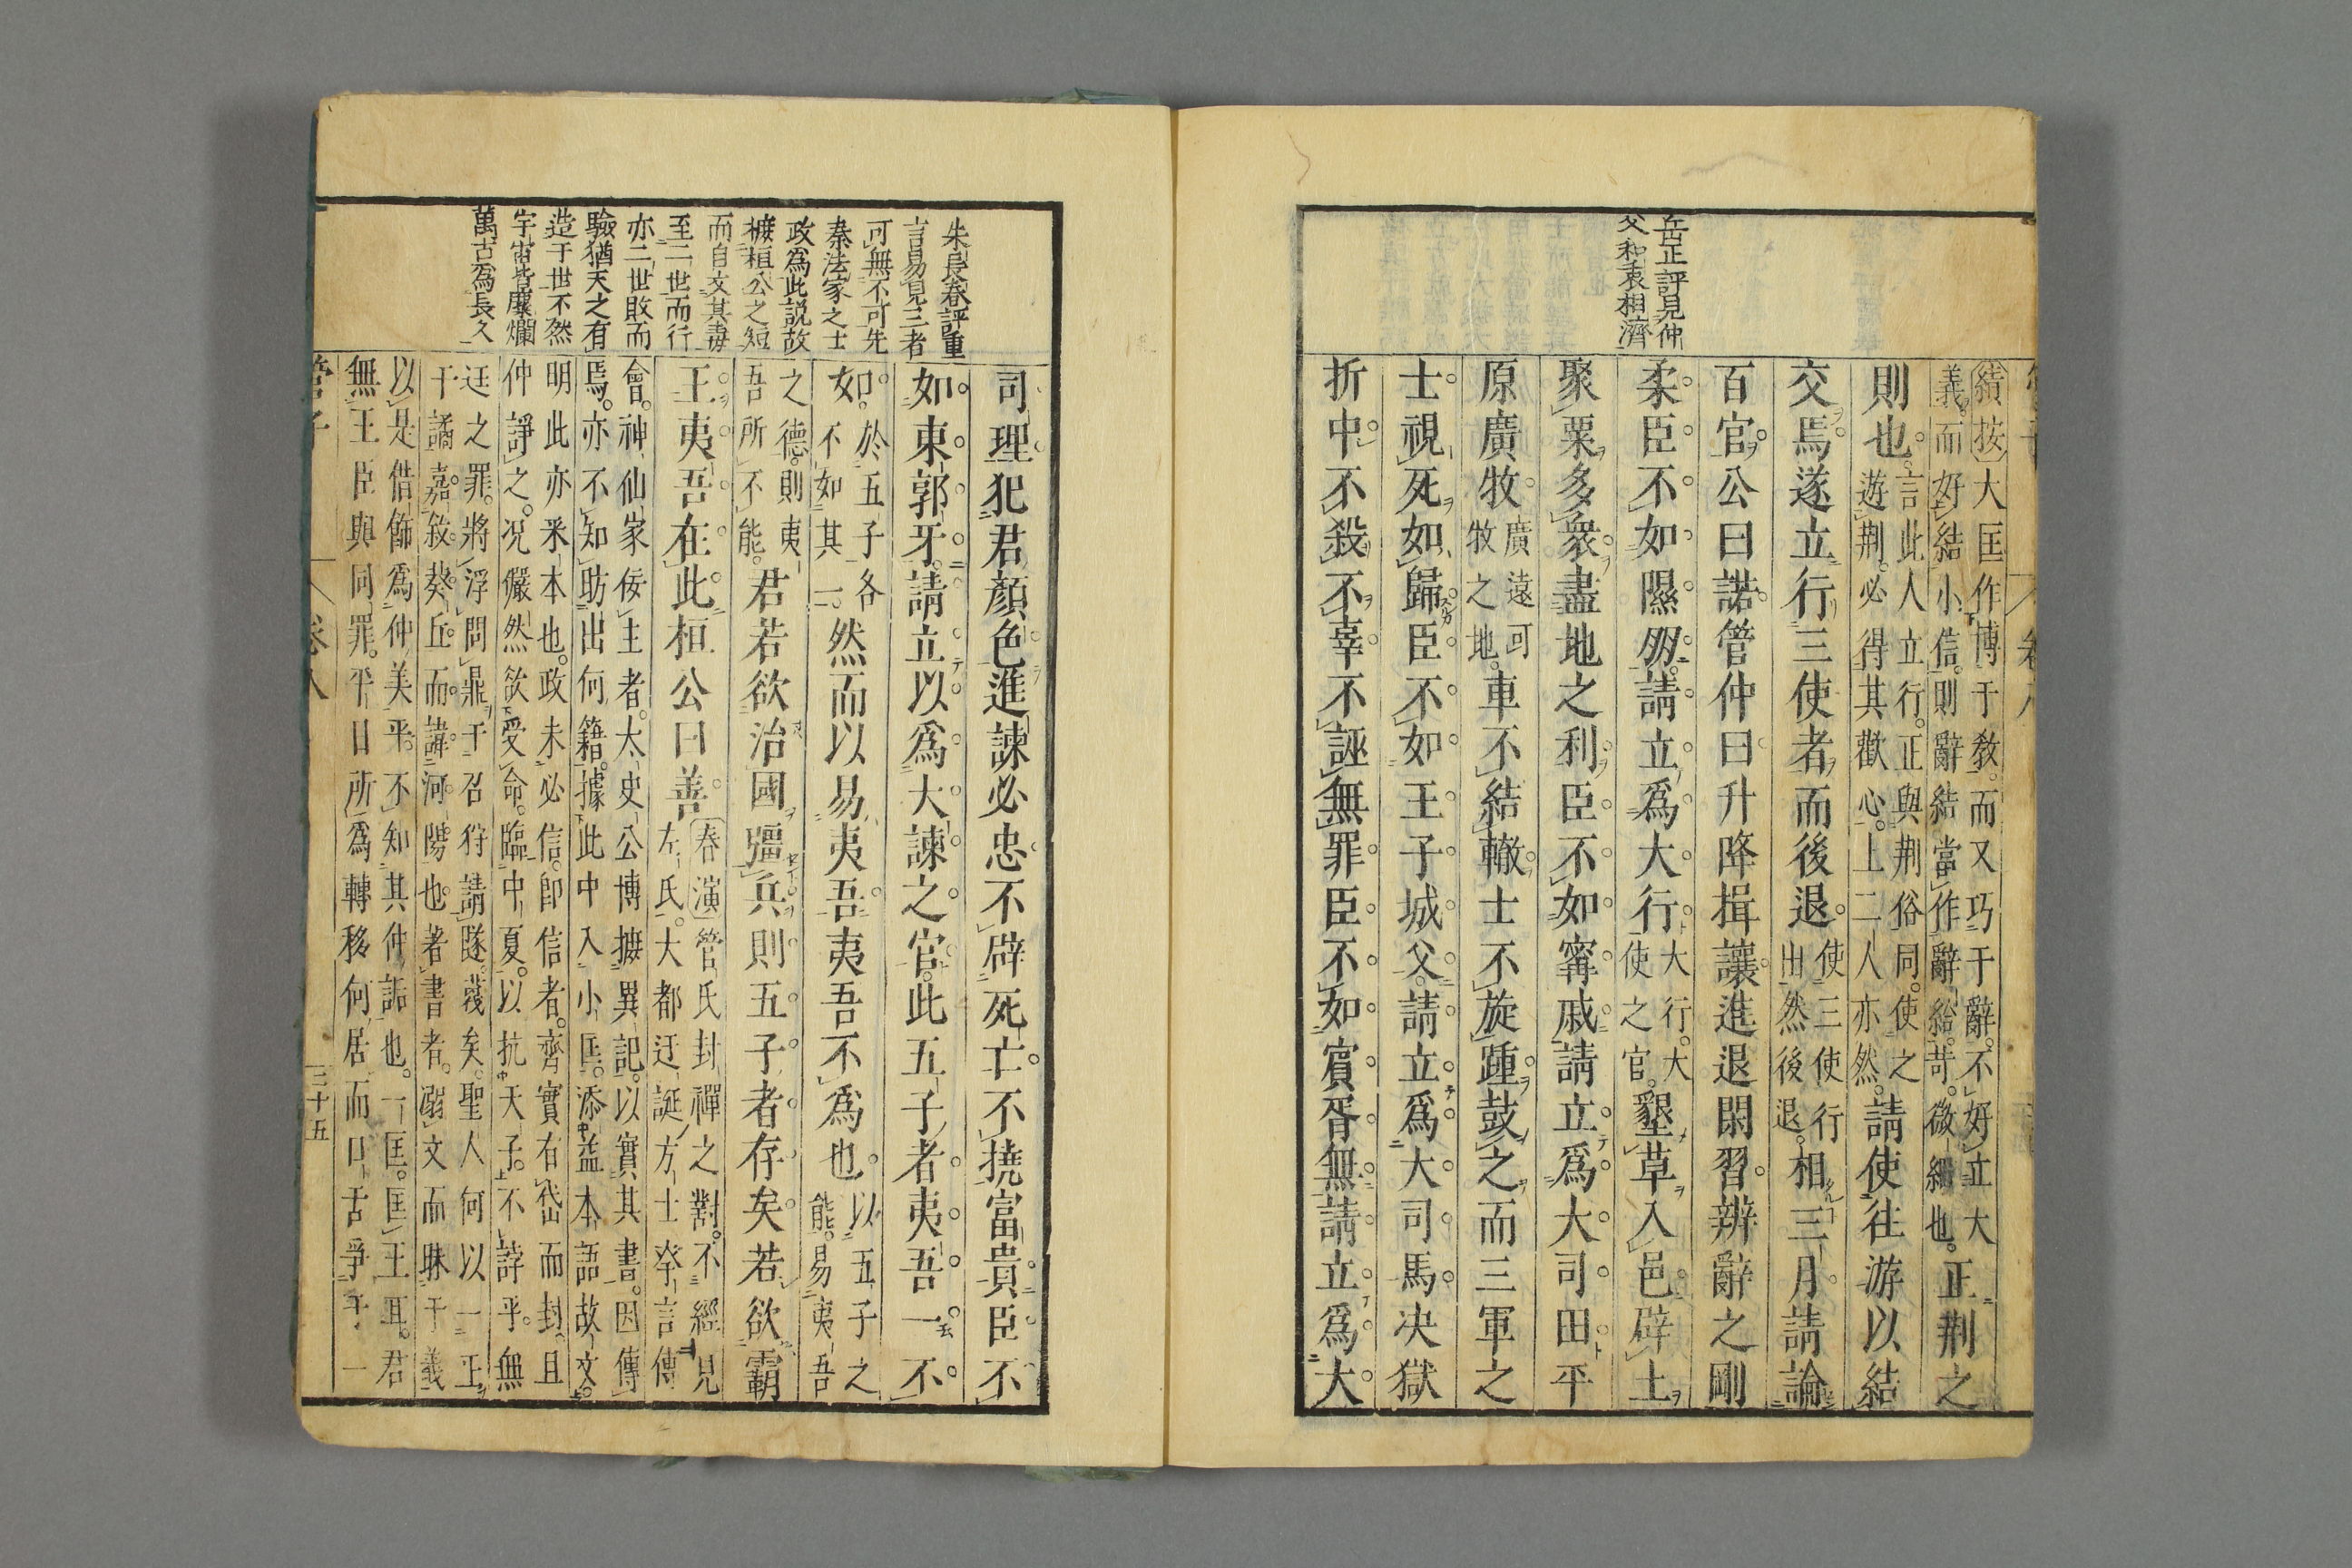 岳正評見仲
父和衷相濟
績按大匡作博于教而又巧于辭不好立大
義而好結小信則辭結當作辭給苛微細也
正荆之
則也
言此人立行正與荆俗同使之
遊荆必得其歡心上二人亦然
請使往游以結
交焉遂立行三使者而後退
使三使行
出然後退
相三月請論
百官公曰諾管仲曰升降揖讓進退閑習辨辭之剛
柔臣不如隰朋請立爲大行
大行大
使之官
墾草入邑辟土
聚粟多衆盡地之利臣不如甯戚請立爲大司田平
原廣牧
廣遠可
牧之地
車不結轍士不旋踵鼓之而三軍之
士視死如歸臣不如王子城父請立爲大司馬决獄
折中不殺不辜不誣無罪臣不如賓胥無請立爲大
朱長春評重
言易見三者
可無不可先
秦法家之士
政爲此説故
據桓公之短
而自文其毒
至二世而行
亦二世敗而
驗猶天之有
造于世不然
宇宙皆麋爛
萬古爲長久
司理犯君顏色進諫必忠不辟死亡不撓富貴臣不
如東郭牙請立以爲大諫之官此五子者夷吾一不
如
於五子各
不如其一
然而以易夷吾夷吾不爲也
以五子之
能易夷吾
之德則夷
吾所不能
君若欲治國彊兵則五子者存矣若欲霸
王夷吾在此桓公曰善
春演管氏封禪之對不經見
左氏大都迂誕方士夅言傅
會神仙家侫主者太史公博摭異記以實其書因傳
焉亦不知昉出何籍據此中入小匡添益本語故文
明此亦釆本也政未必信卽信者齊實右岱而封且
仲諍之况儼然欲受命臨中夏以抗天子不諄乎無
迋之罪將浮問鼎于召狩請隧蔑矣聖人何以一正
干譎嘉敘葵丘而諱河陽也者書者溺文而昧于義
以是借飾爲仲美乎不知其仲詬也一匡匡王耳君
無王臣與同罪平日所爲轉移何居而口舌爭于一
管子
卷八
三十五